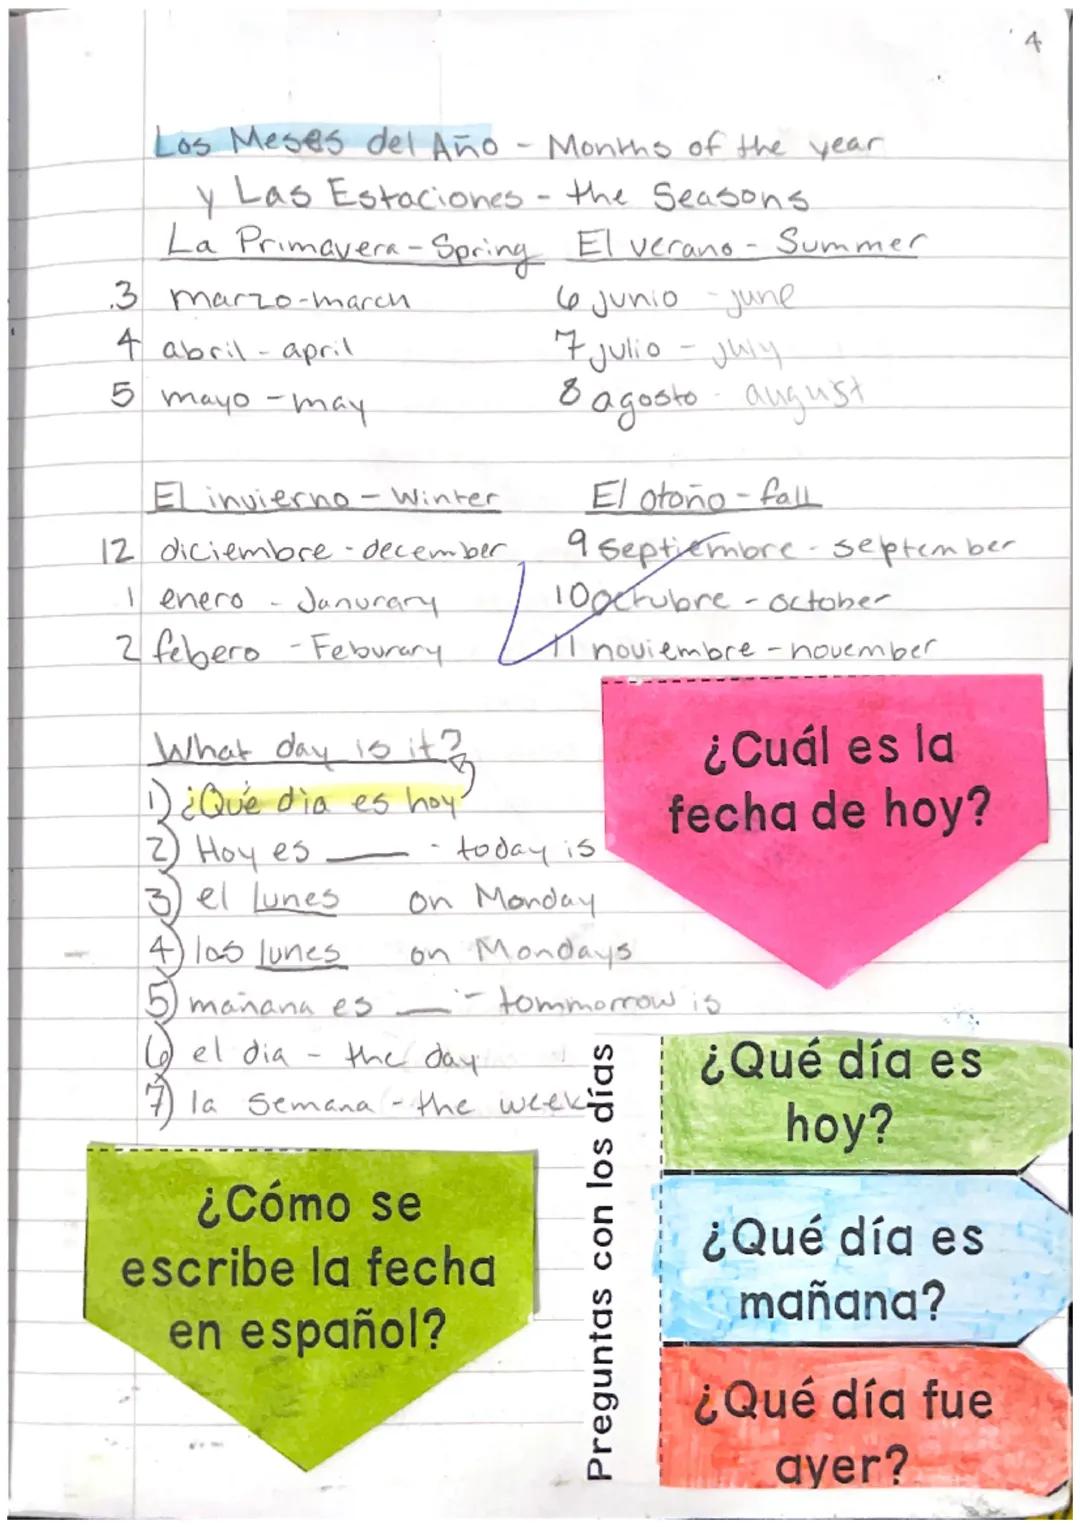 4
Los Meses del Año - Months of the year
y Las Estaciones - the Seasons
La Primavera - Spring El verano - Summer
3 marzo - march 6 junio - june
4 abril - april 7 julio - july
5 mayo - may 8 agosto - august
El invierno - Winter El otoño - fall
12 diciembre - december 9 septiembre - september
1 enero - Janurary 10 octubre - october
2 febero - Feburary 11 noviembre - november
What day is it?
1) ¿Qué día es hoy?
2) Hoy es ___ - today is
3) el lunes on Monday
4) los lunes on Mondays
5) mañana es __ - tommorrow is
6) el dia - the day
7) la semana - the week
¿Cuál es la
fecha de hoy?
¿Cómo se
escribe la fecha
en español?
Preguntas con los días
¿Qué día es
hoy?
¿Qué día es
mañana?
¿Qué día fue
ayer?